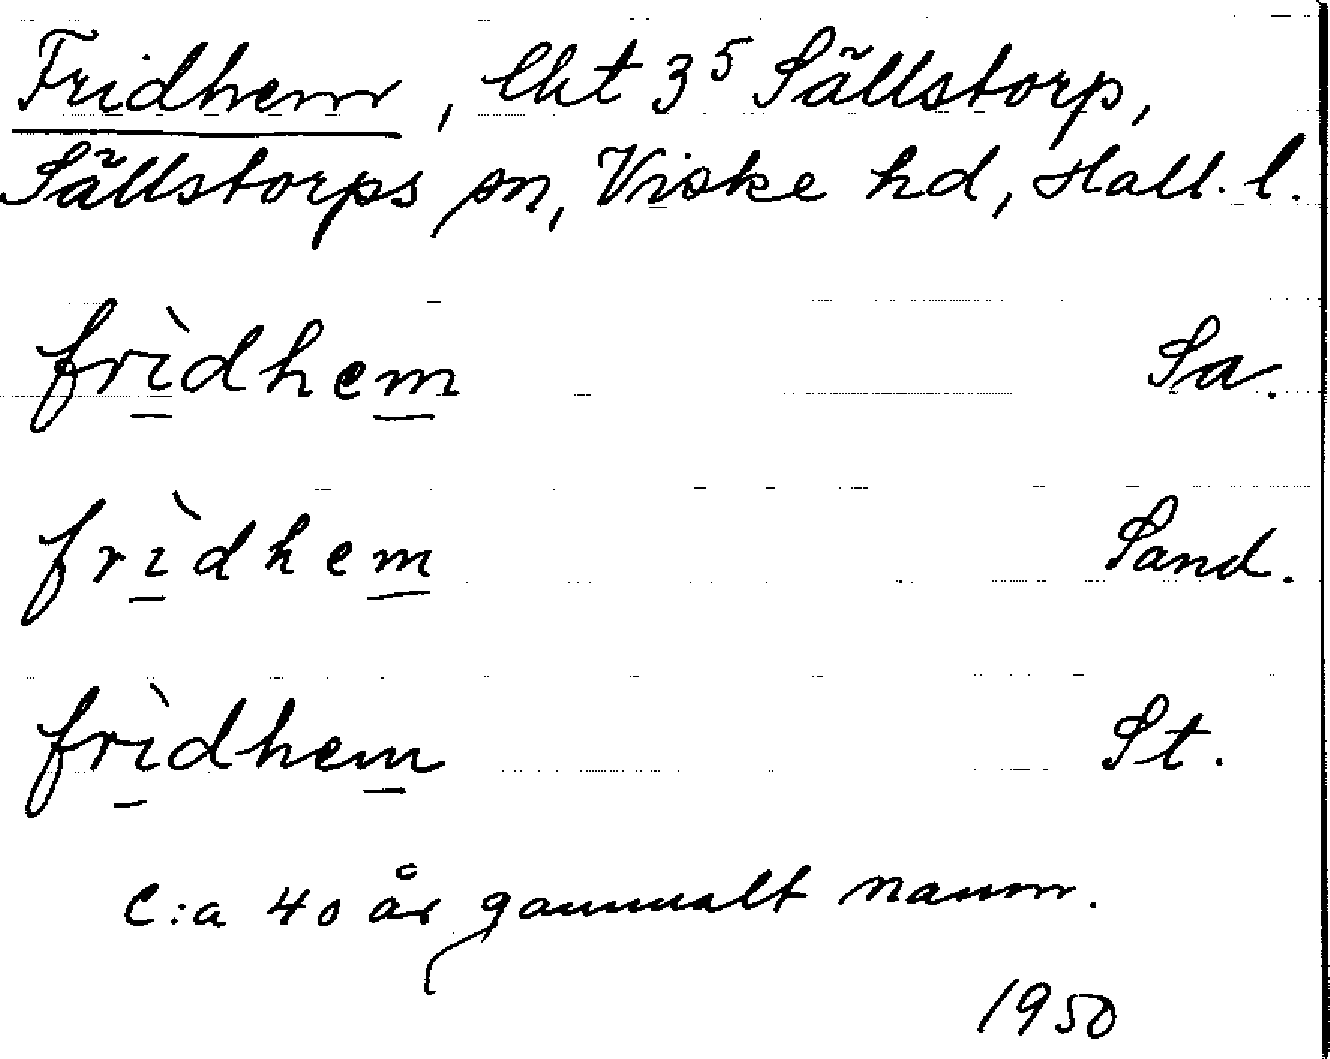 Fridhem, lht 3⁵ Sällstorp,
Sällstorps sn, Viske hd, Hall. l.
frìdhem Sa.
frìdhem Sand.
frìdhem St.
C:a 40 år gammalt namn.
1950